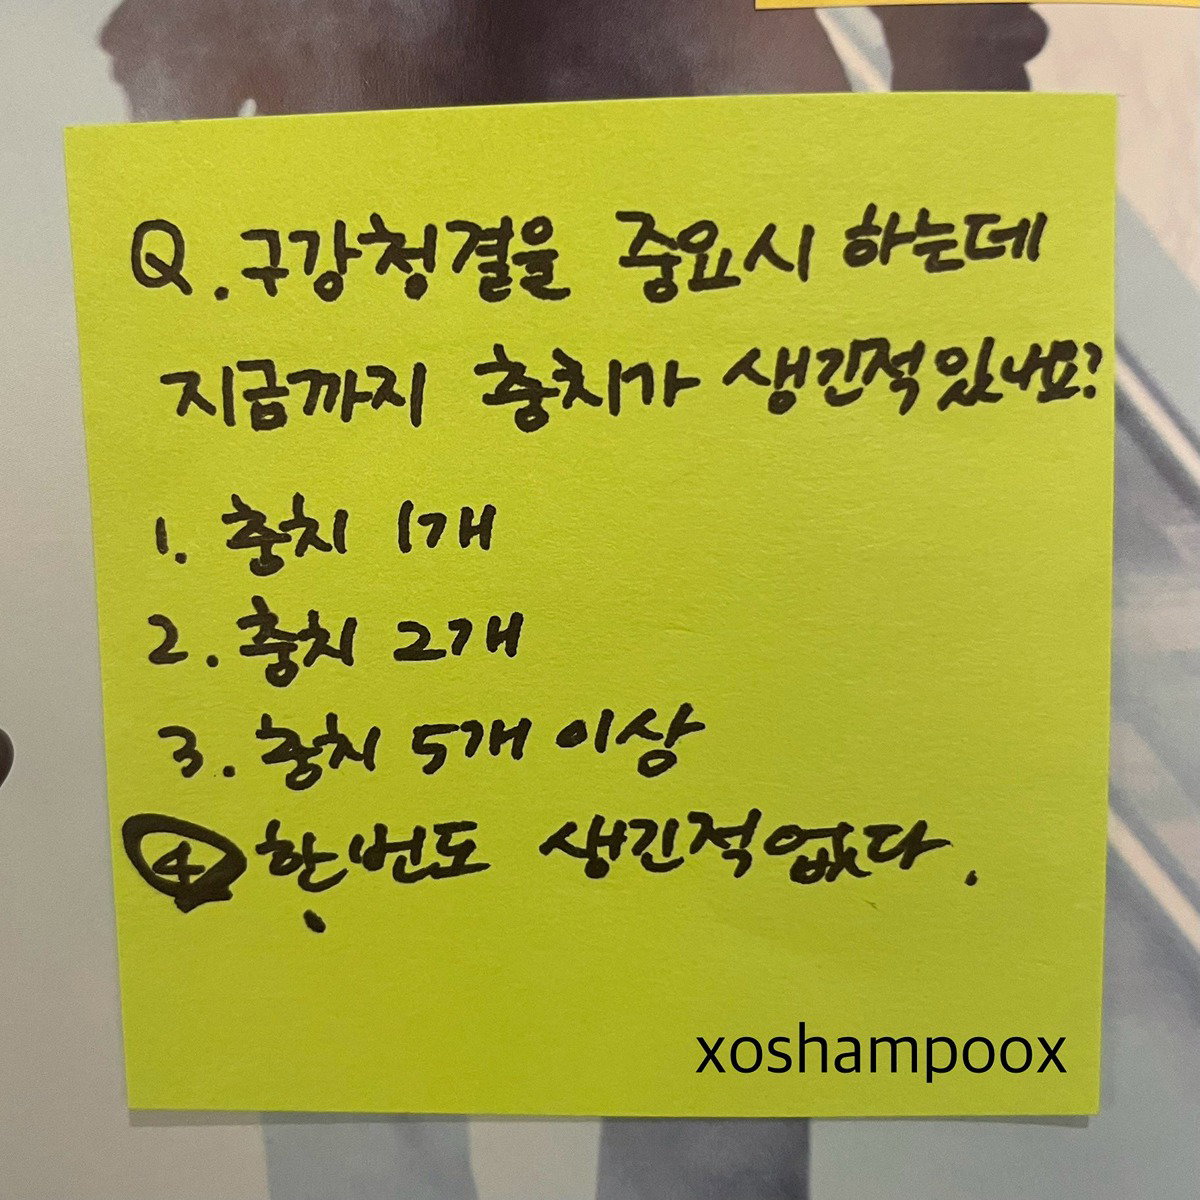 Q. 구강청결을 중요시 하는데
지금까지 충치가 생긴적있나요?
1. 충치 1개
2. 충치 2개
3. 충치 5개 이상
4 한번도 생긴적없다.
xoshampoox